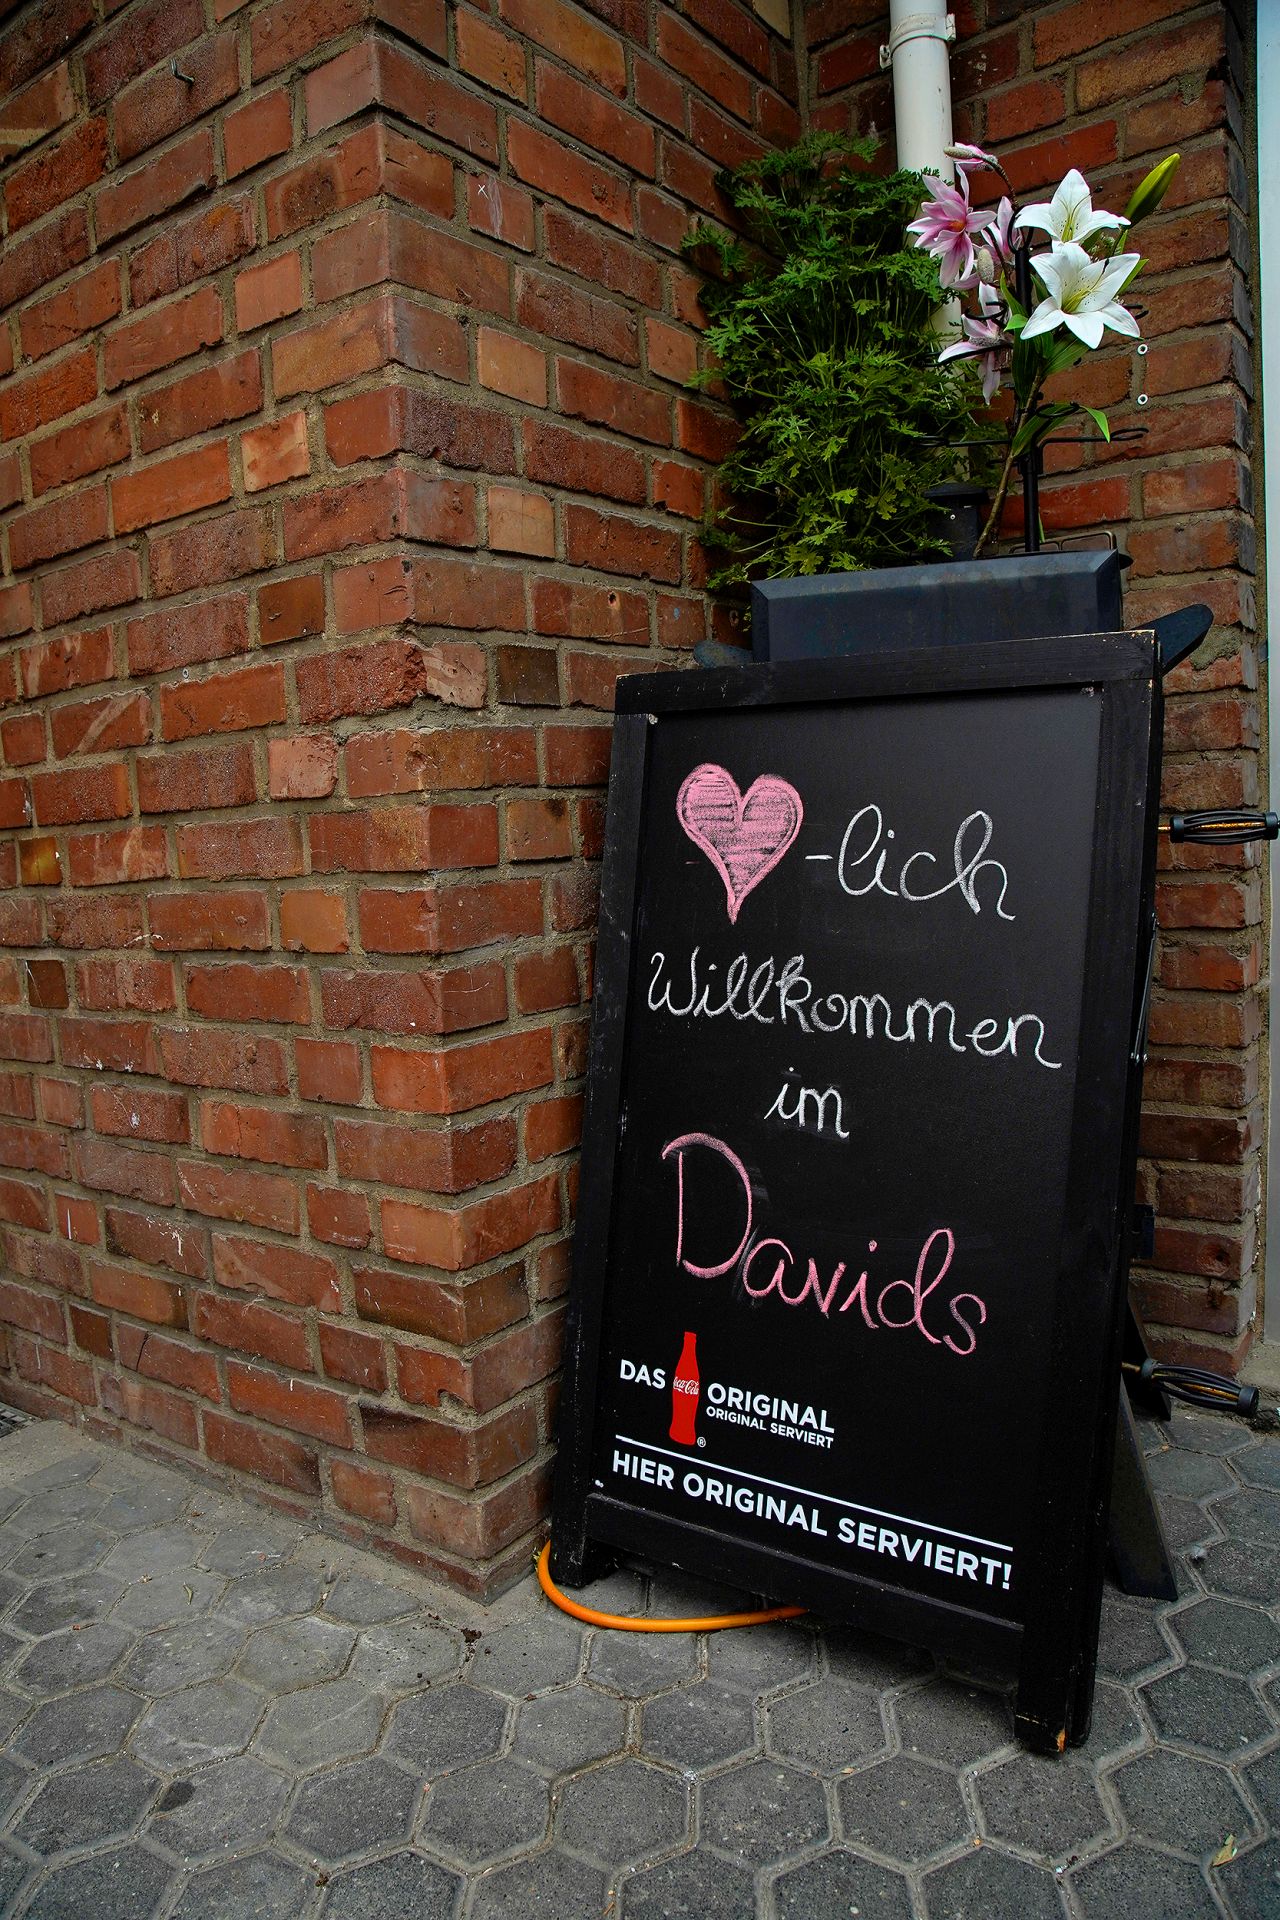 ♥-lich
Willkommen
im
Davids
DAS Coca-Cola ORIGINAL
ORIGINAL SERVIERT
®
HIER ORIGINAL SERVIERT!